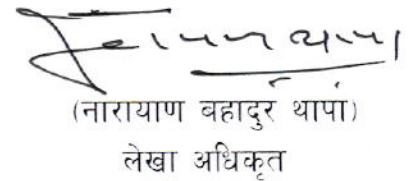 (नारायाण बहादुर थापा)
लेखा अधिकृत